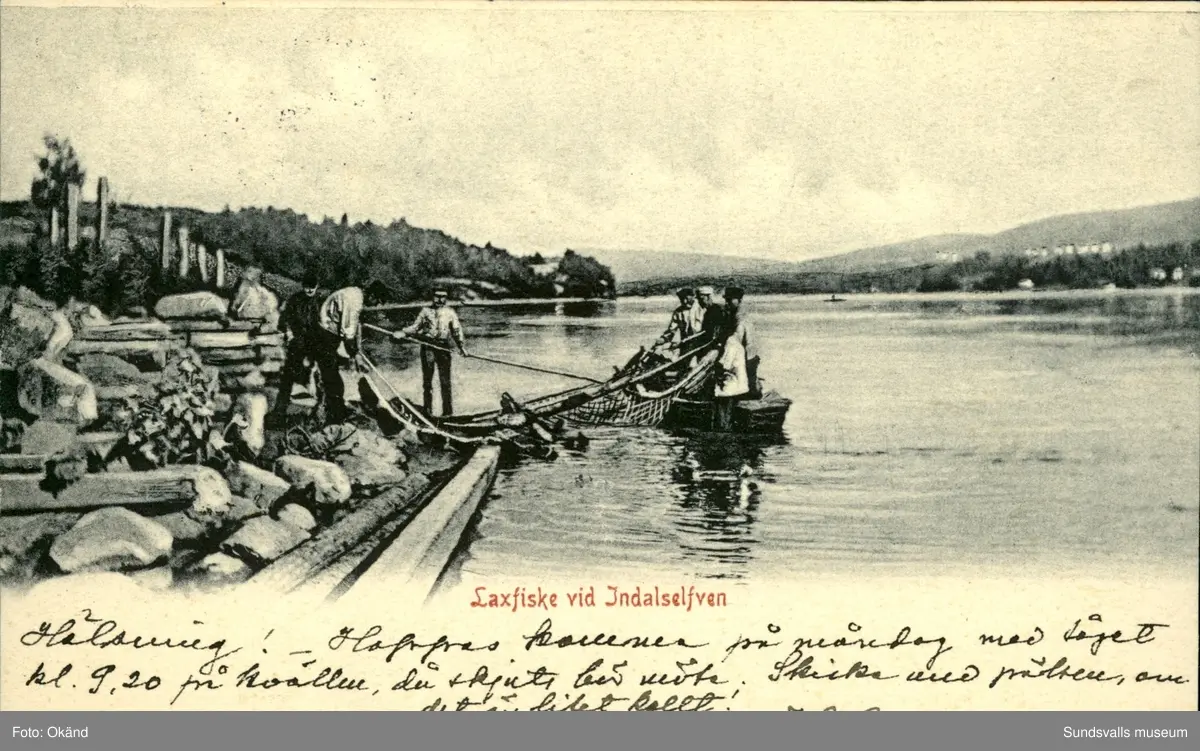 Laxfiske vid Indalselfven
Hälsning! – Hoppas komma på måndag med tåget
kl. 9,20 på kvällen, då skjuts bör möta. Skicka med pälsen, om
det är litet kallt.
Foto: Okänd
Sundsvalls museum